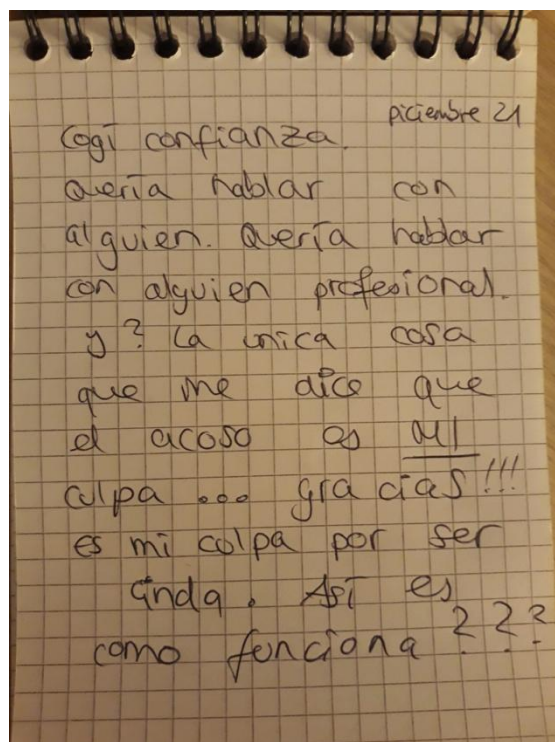 Diciembre 21
Cogí confianza.
Quería hablar con
alguien. Quería hablar
con alguien profesional.
y? La unica cosa
que me dice que
el acoso es MI
culpa ... gracias!!!
es mi culpa por ser
linda. Así es
como funciona???